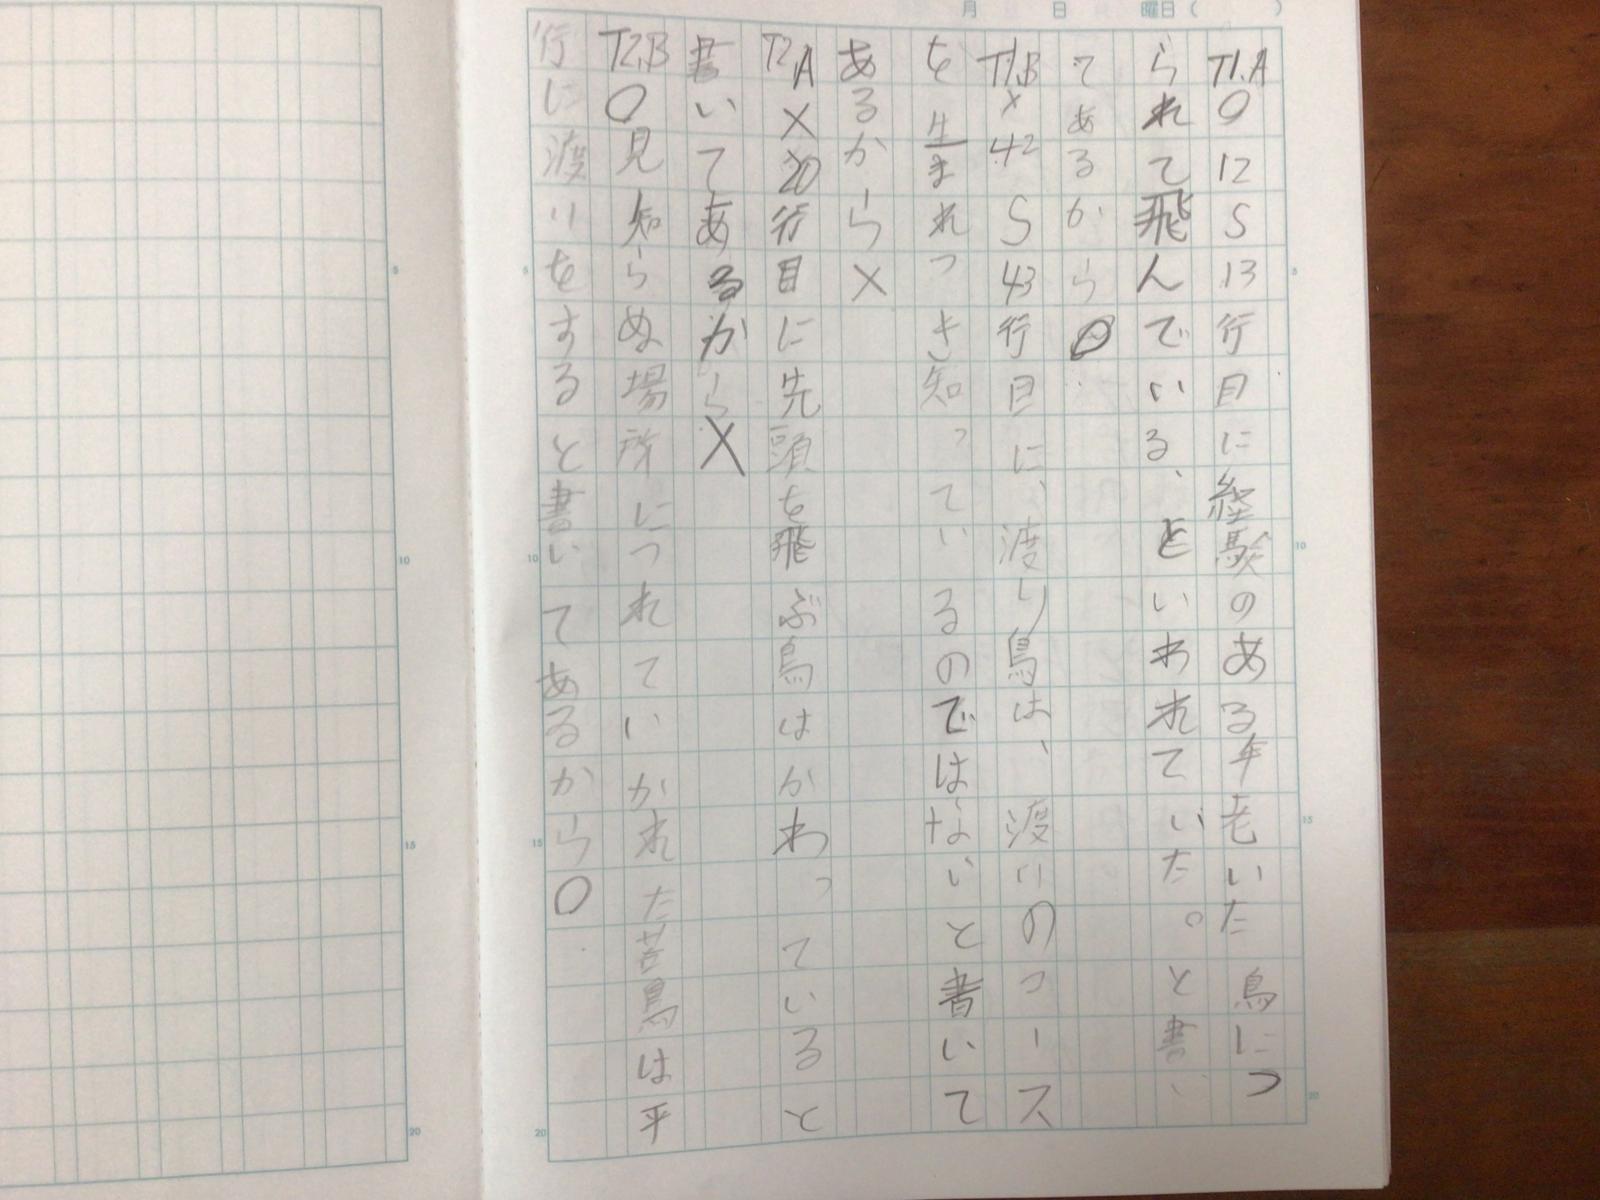 月 日 曜日( )
T1.A〇12S13行目に経験のある年老いた鳥につ
られて飛んでいる、といわれていた。と書い
てあるから〇
T1.B×42S43行目に、渡り鳥は、渡りのコース
を生まれつき知っているのではないと書いて
あるから×
T2A×20行目に先頭を飛ぶ鳥はかわっていると
書いてあるから×
T2.B〇見知らぬ場所につれていかれた若鳥は平
行に渡りをすると書いてあるから〇
5
10
15
20
5
10
15
20
5
10
15
20